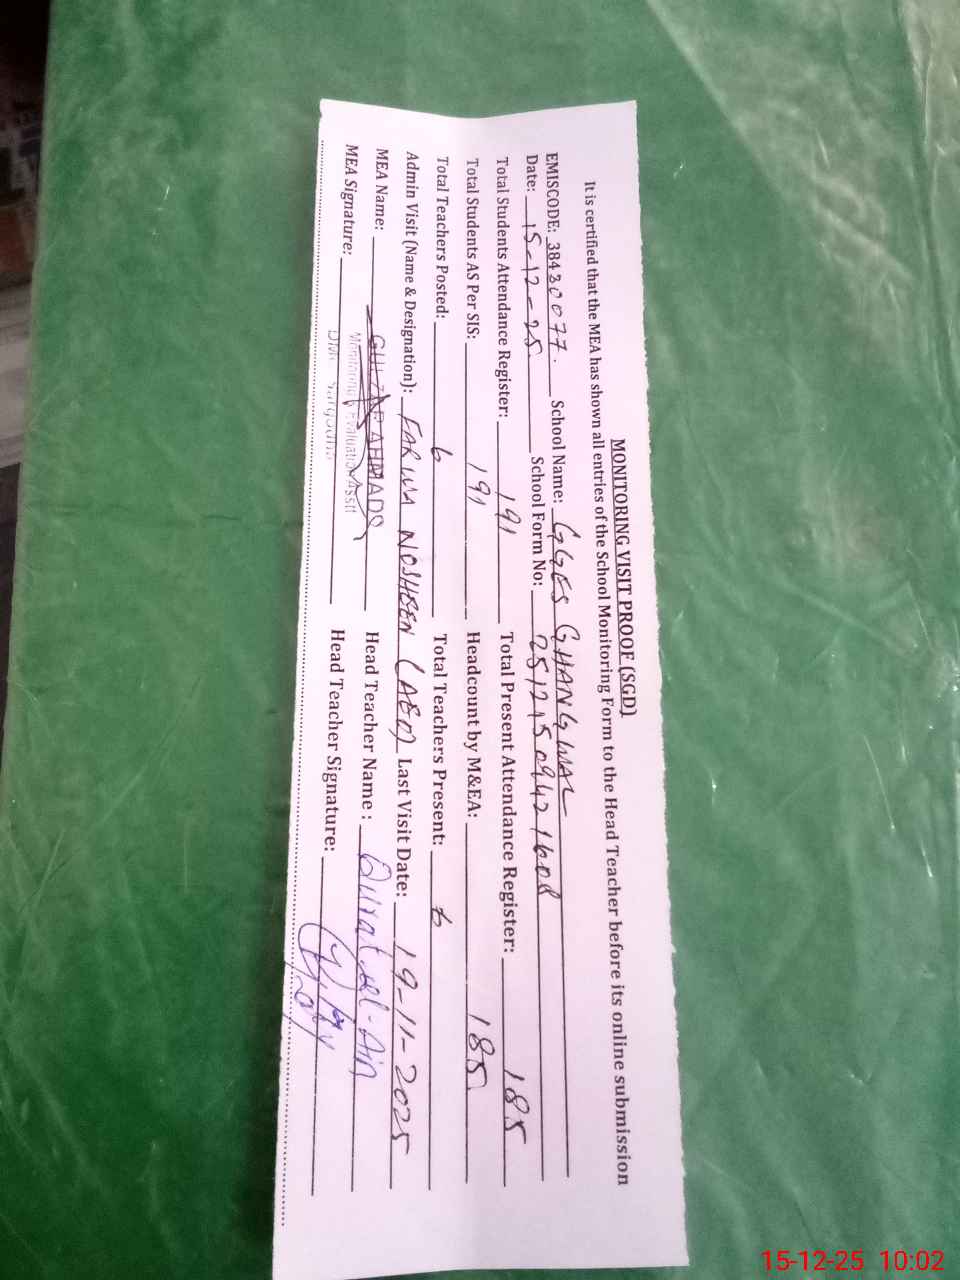 MONITORING VISIT PROOF (SGD)
It is certified that the MEA has shown all entries of the School Monitoring Form to the Head Teacher before its online submission
EMISCODE: 38430077. School Name: GGES GHANGWAL
Date: 15-12-25 School Form No:
Total Students Attendance Register: 191 Total Present Attendance Register: 185
Total Students AS Per SIS: 191 Headcount by M&EA: 185
Total Teachers Posted: 6 Total Teachers Present: 6
Admin Visit (Name & Designation): NOSHEEN (AEO) Last Visit Date: 19-11-2025
MEA Name: Head Teacher Name: Qurat-ul-Ain
MEA Signature: Head Teacher Signature:
15-12-25 10:02